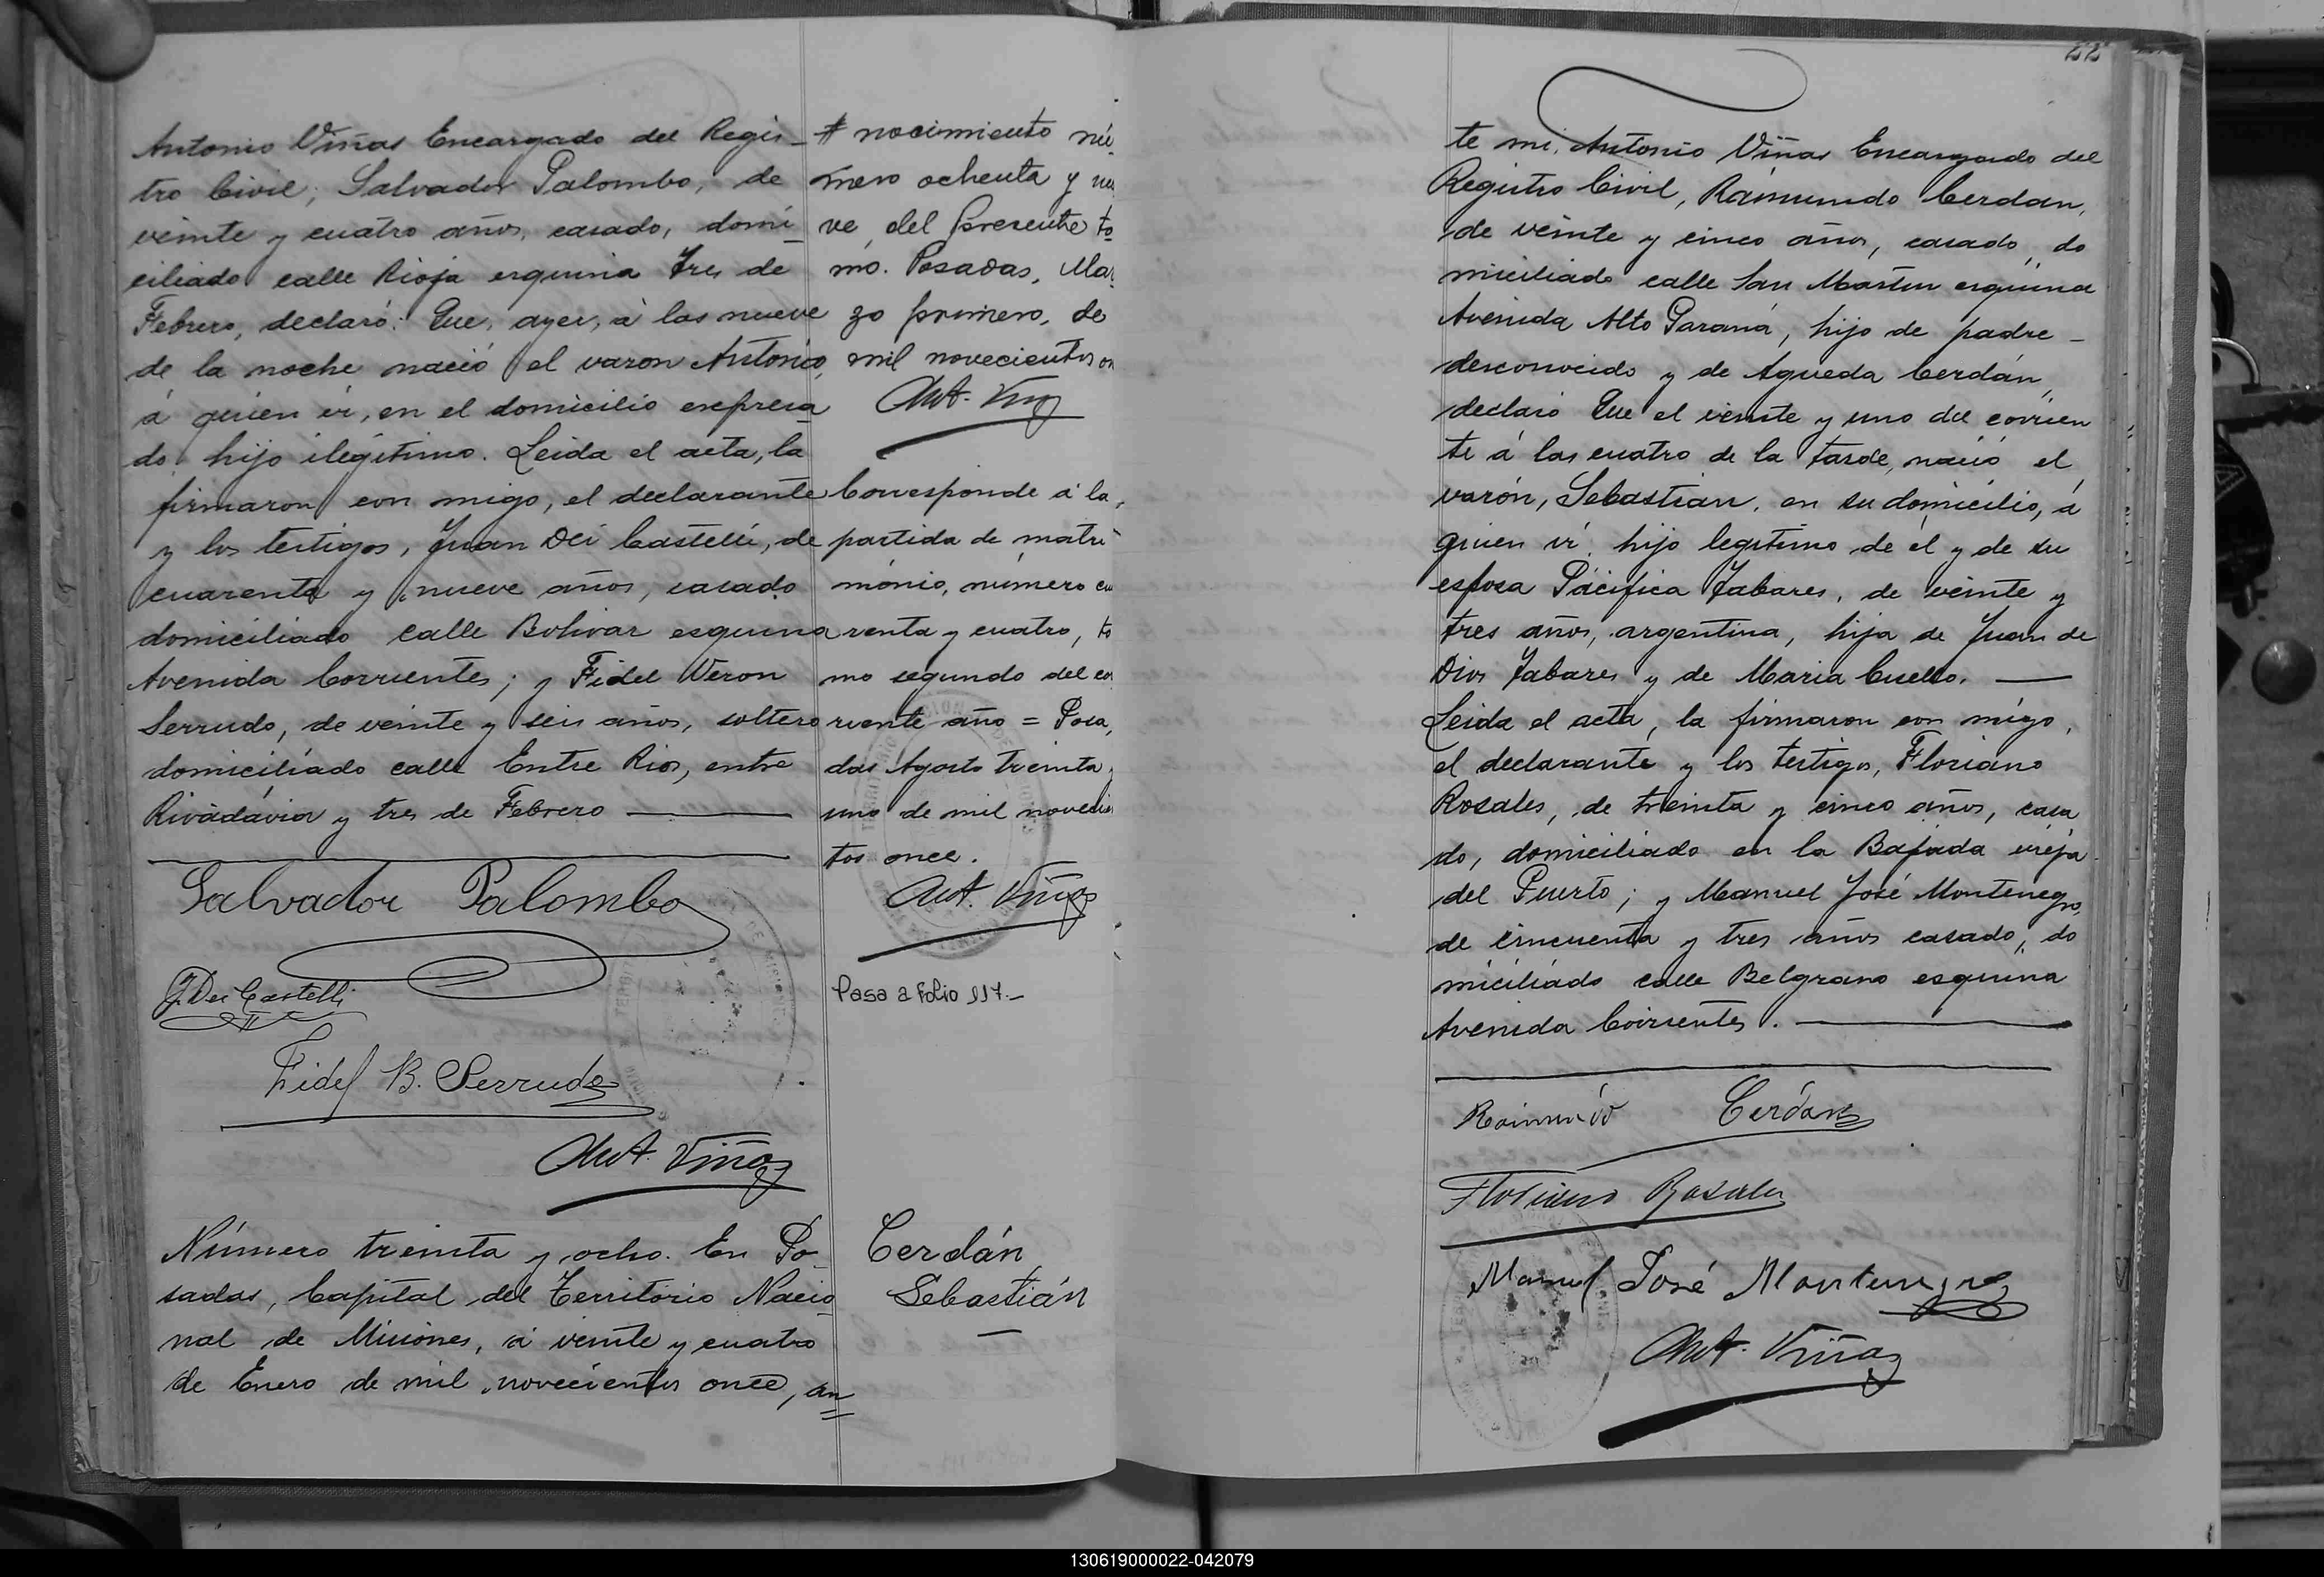 Antonio Viñas Encargado del Regis-
tro Civil, Salvador Palombo, de
veinte y cuatro años, casado, domi-
ciliado calle Rioja esquina Tres de
Febrero, declaró: Que, ayer, á las nueve
de la noche nació el varon Antonio,
á quien ví, en el domicilio expresa-
do hijo ilegítimo. Leida el acta, la
firmaron con migo, el declarante
y los testigos, Juan Dei Castelli, de
cuarenta y nueve años, casado
domiciliado calle Bolivar esquina
Avenida Corrientes; y Fidel Veron
Serrudo, de veinte y seis años, soltero
domiciliado calle Entre Rios, entre
Rivadavia y tres de Febrero
Salvador Palombo
J. Dei Castelli
Fidel B. Serrudo
Ant. Viñas
Número treinta y ocho. En Po-
sadas, Capital del Territorio Nacio-
nal de Misiones, á veinte y cuatro
de Enero de mil novecientos once, an=
# nacimiento nú-
mero ochenta y nue
ve, del presente to-
mo. Posadas, Mar
zo primero, de
mil novecientos on
Ant. Viñas
Corresponde á la
partida de matri-
monio, número cua
renta y cuatro, to
mo segundo del co
rriente año = Posa
das Agosto treinta y
uno de mil novecien
tos once.
Ant. Viñas
Pasa a folio 117.-
Cerdán
Sebastián
22
te mi, Antonio Viñas Encargado del
Registro Civil, Raimundo Cerdan,
de veinte y cinco años, casado, do
miciliado calle San Martin esquina
Avenida Alto Paraná, hijo de padre -
desconocido y de Agueda Cerdán,
declaró Que el veinte y uno del corrien
te á las cuatro de la tarde, nació el
varón, Sebastian, en su domicilio, á
quien ví, hijo legítimo de él y de su
esposa Pacífica Tabares, de veinte y
tres años, argentina, hija de Juan de
Dios Tabares y de Maria Cuello.
Leida el acta, la firmaron con migo,
el declarante y los testigos, Floriano
Rosales, de treinta y cinco años, casa
do, domiciliado en la Bajada vieja
del Puerto; y Manuel José Montenegro,
de cincuenta y tres años casado, do
miciliado calle Belgrano esquina
Avenida Corrientes.
Raimundo Cerdán
Floriano Rosales
Manuel José Montenegro
Ant. Viñas
130619000022-042079